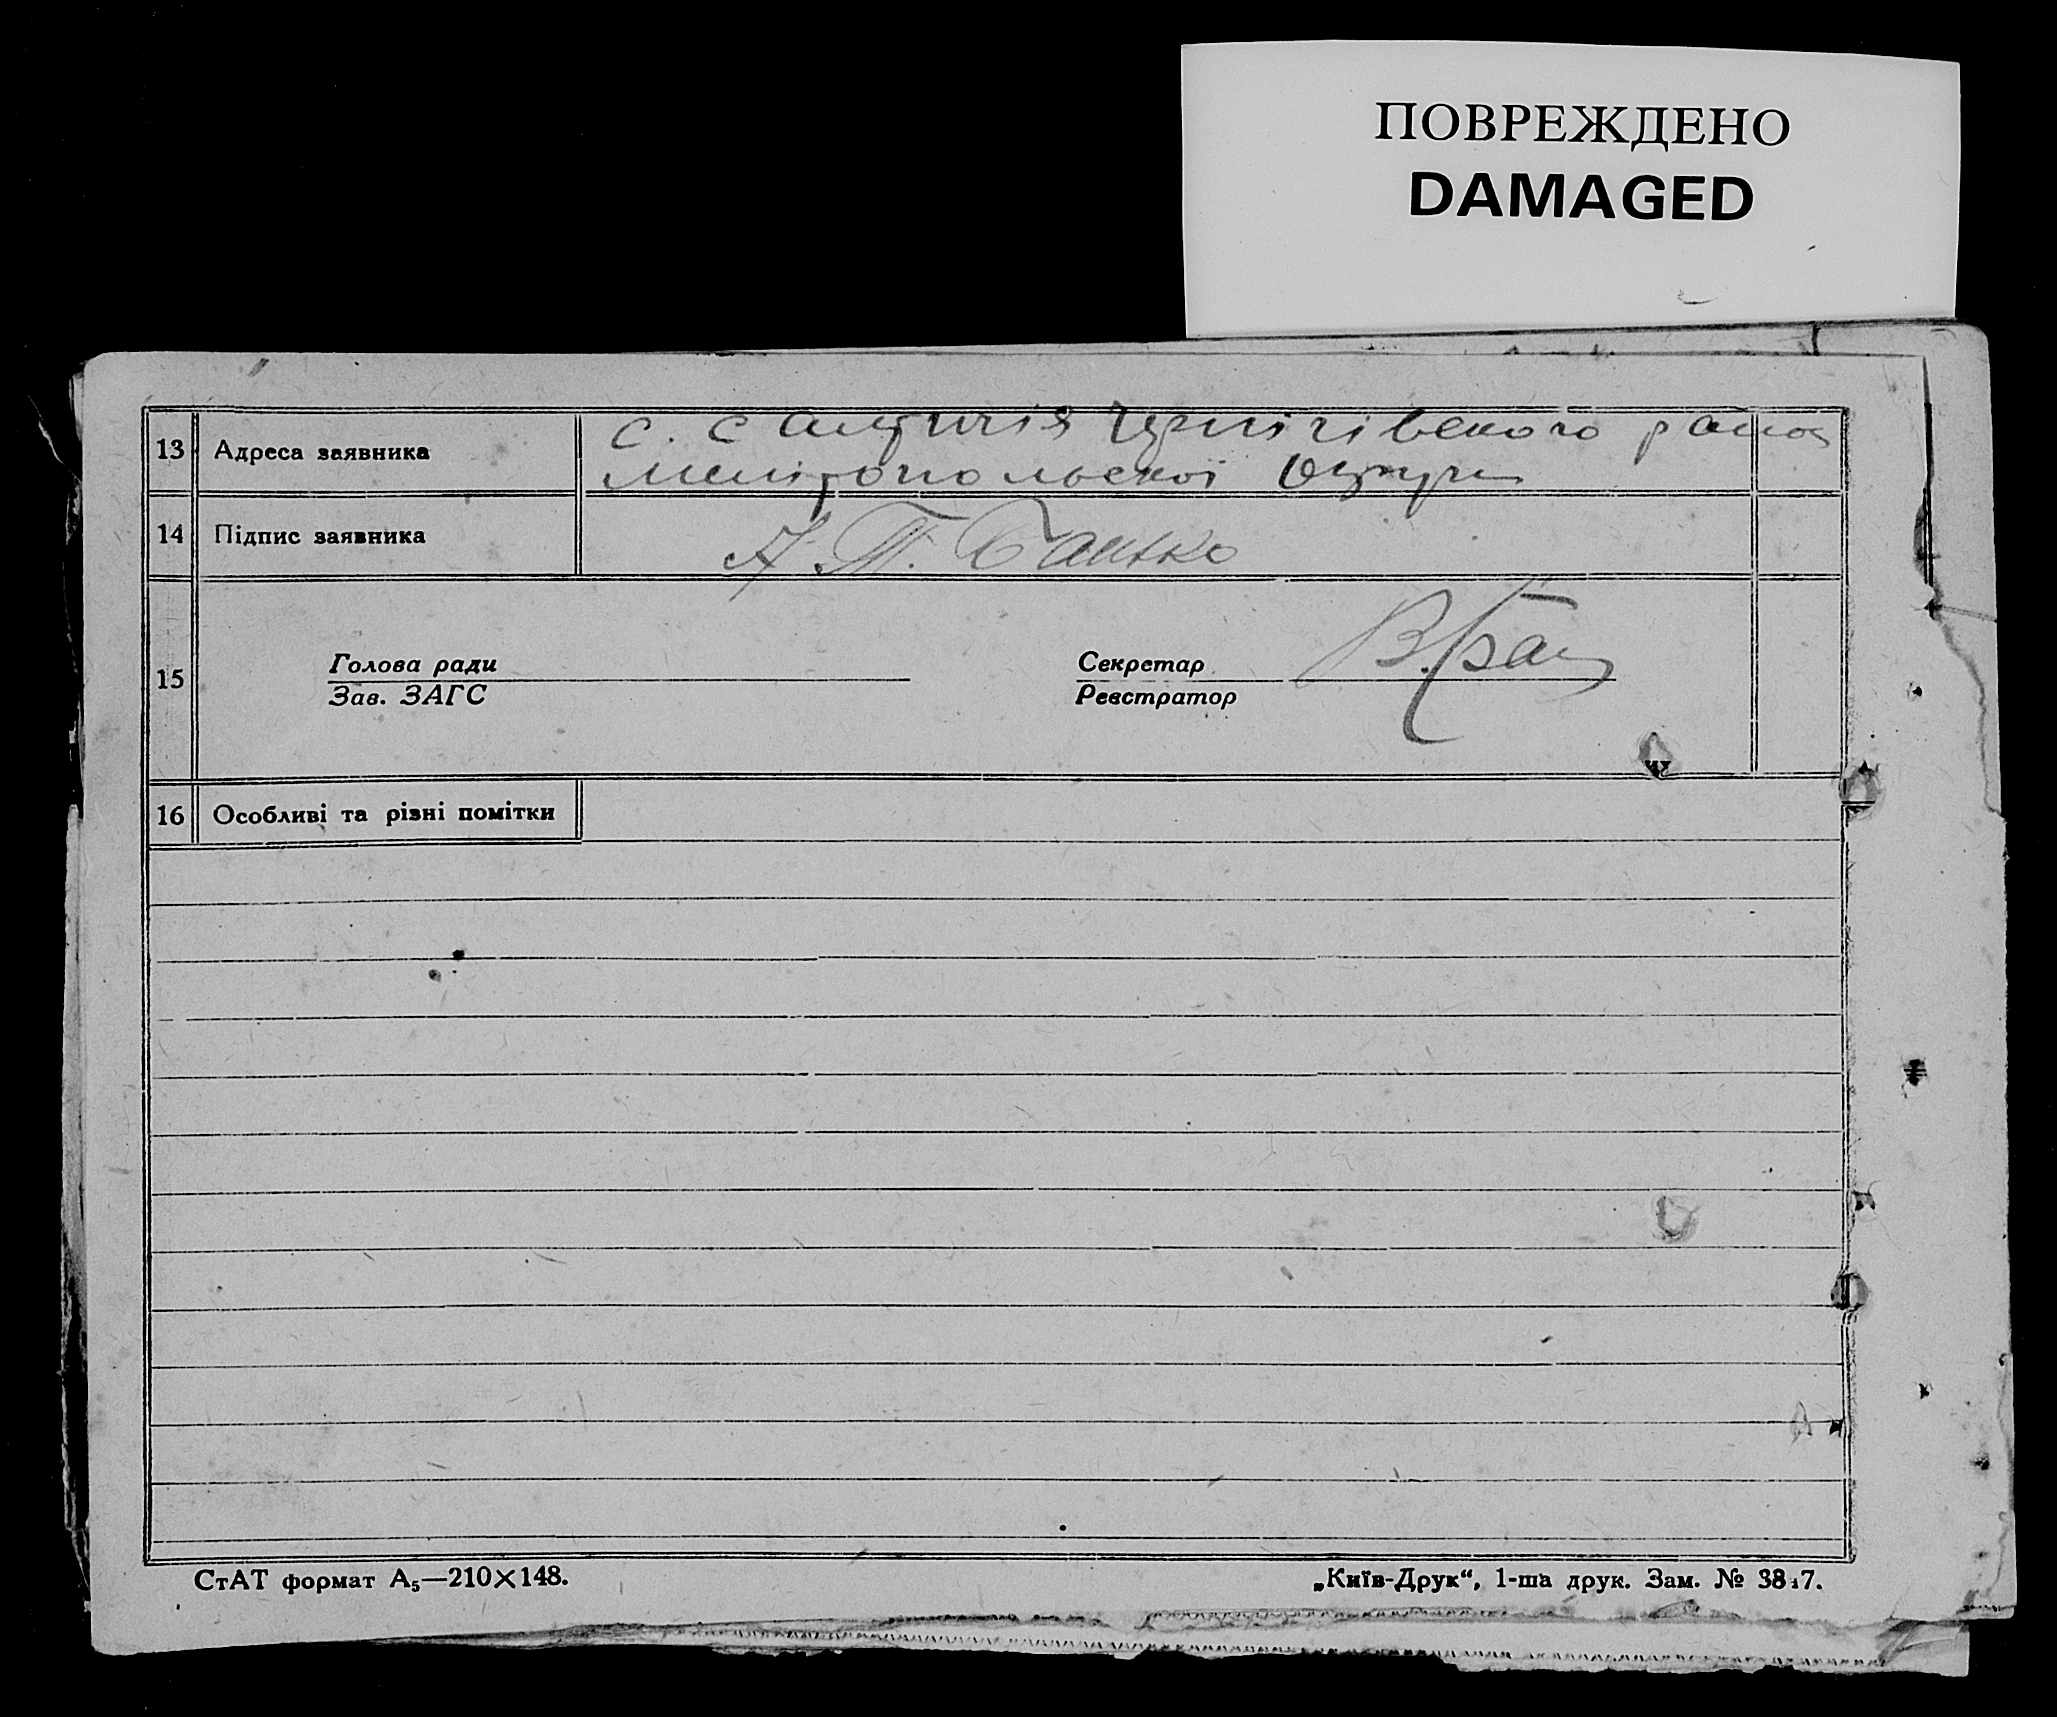 ПОВРЕЖДЕНО
DAMAGED
13 Адреса заявника с. Салтичія Чернігівського району
Мелітопольскої Округи
14 Підпис заявника А. П. Банько
15 Голова ради
Зав. ЗАГС
Секретар
Реєстратор
16 Особливі та різні помітки
СтАТ формат А₅—210×148.
„Київ-Друк“, 1-ша друк. Зам. №